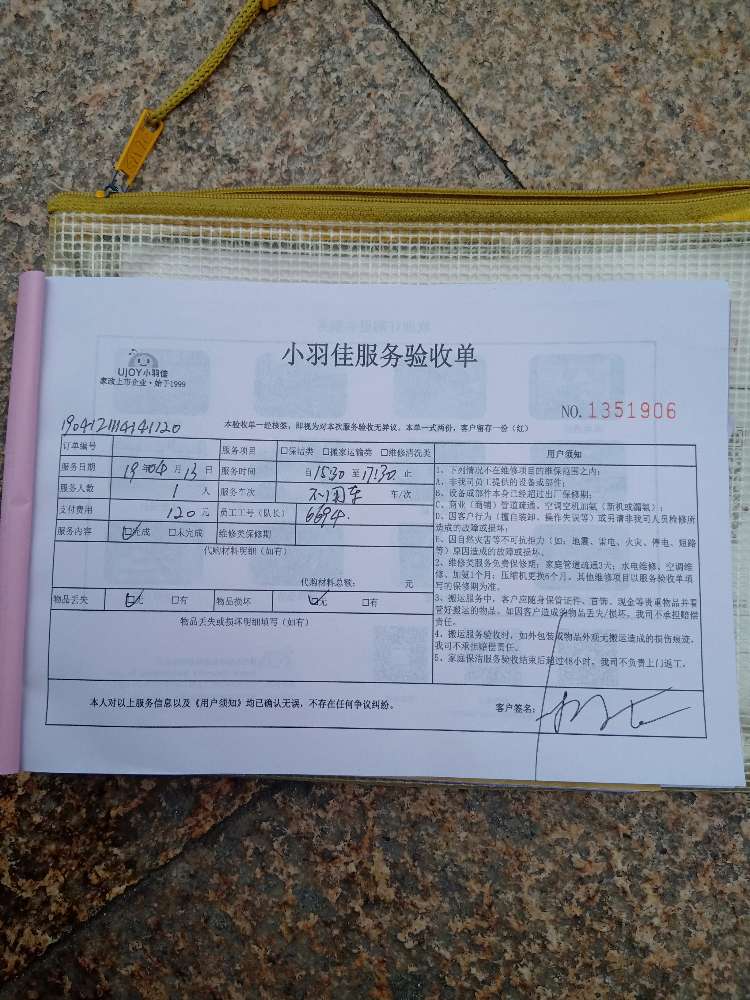 UJOY小羽佳
家政上市企业·始于1999
小羽佳服务验收单
NO. 1351906
本验收单一经核签，即视为对本次服务验收无异议。本单一式两份，客户留存一份（红）
订单编号
服务项目 □保洁类 □搬家运输类 □维修清洗类
服务日期 19年04月13日 服务时间 自15:30至17:30止
服务人数 1人 服务车次 不用车 车/次
支付费用 120元 员工工号（队长） 6694
服务内容 □完成 □未完成 维修类保修期
代购材料明细（如有）
代购材料总额： 元
物品丢失 □无 □有 物品损坏 □无 □有
物品丢失或损坏明细填写（如有）
用户须知
1、下列情况不在维修项目的维保范围之内：
A、非我司员工提供的设备或部件；
B、设备或部件本身已经超过出厂保修期；
C、商业（商铺）管道疏通、空调空机加氟（新机或漏氟）；
D、因客户行为（擅自装卸、操作失误等）或另请非我司人员检修所
造成的故障或损坏；
E、因自然灾害等不可抗拒力（如：地震、雷电、火灾、停电、短路
等）原因造成的故障或损坏。
2、维修类服务免费保修期：家庭管道疏通3天；水电维修、空调维
修、加氟1个月；压缩机更换6个月。其他维修项目以服务验收单填
写的保修期为准。
3、搬运服务中，客户应随身保管证件、首饰、现金等贵重物品并看
管好搬运的物品。如因客户造成的物品丢失/损坏，我司不承担赔偿
责任。
4、搬运服务验收时，如外包装或物品外观无搬运造成的损伤痕迹，
我司不承担赔偿责任。
5、家庭保洁服务验收结束后超过48小时，我司不负责上门返工。
本人对以上服务信息以及《用户须知》均已确认无误，不存在任何争议纠纷。
客户签名：